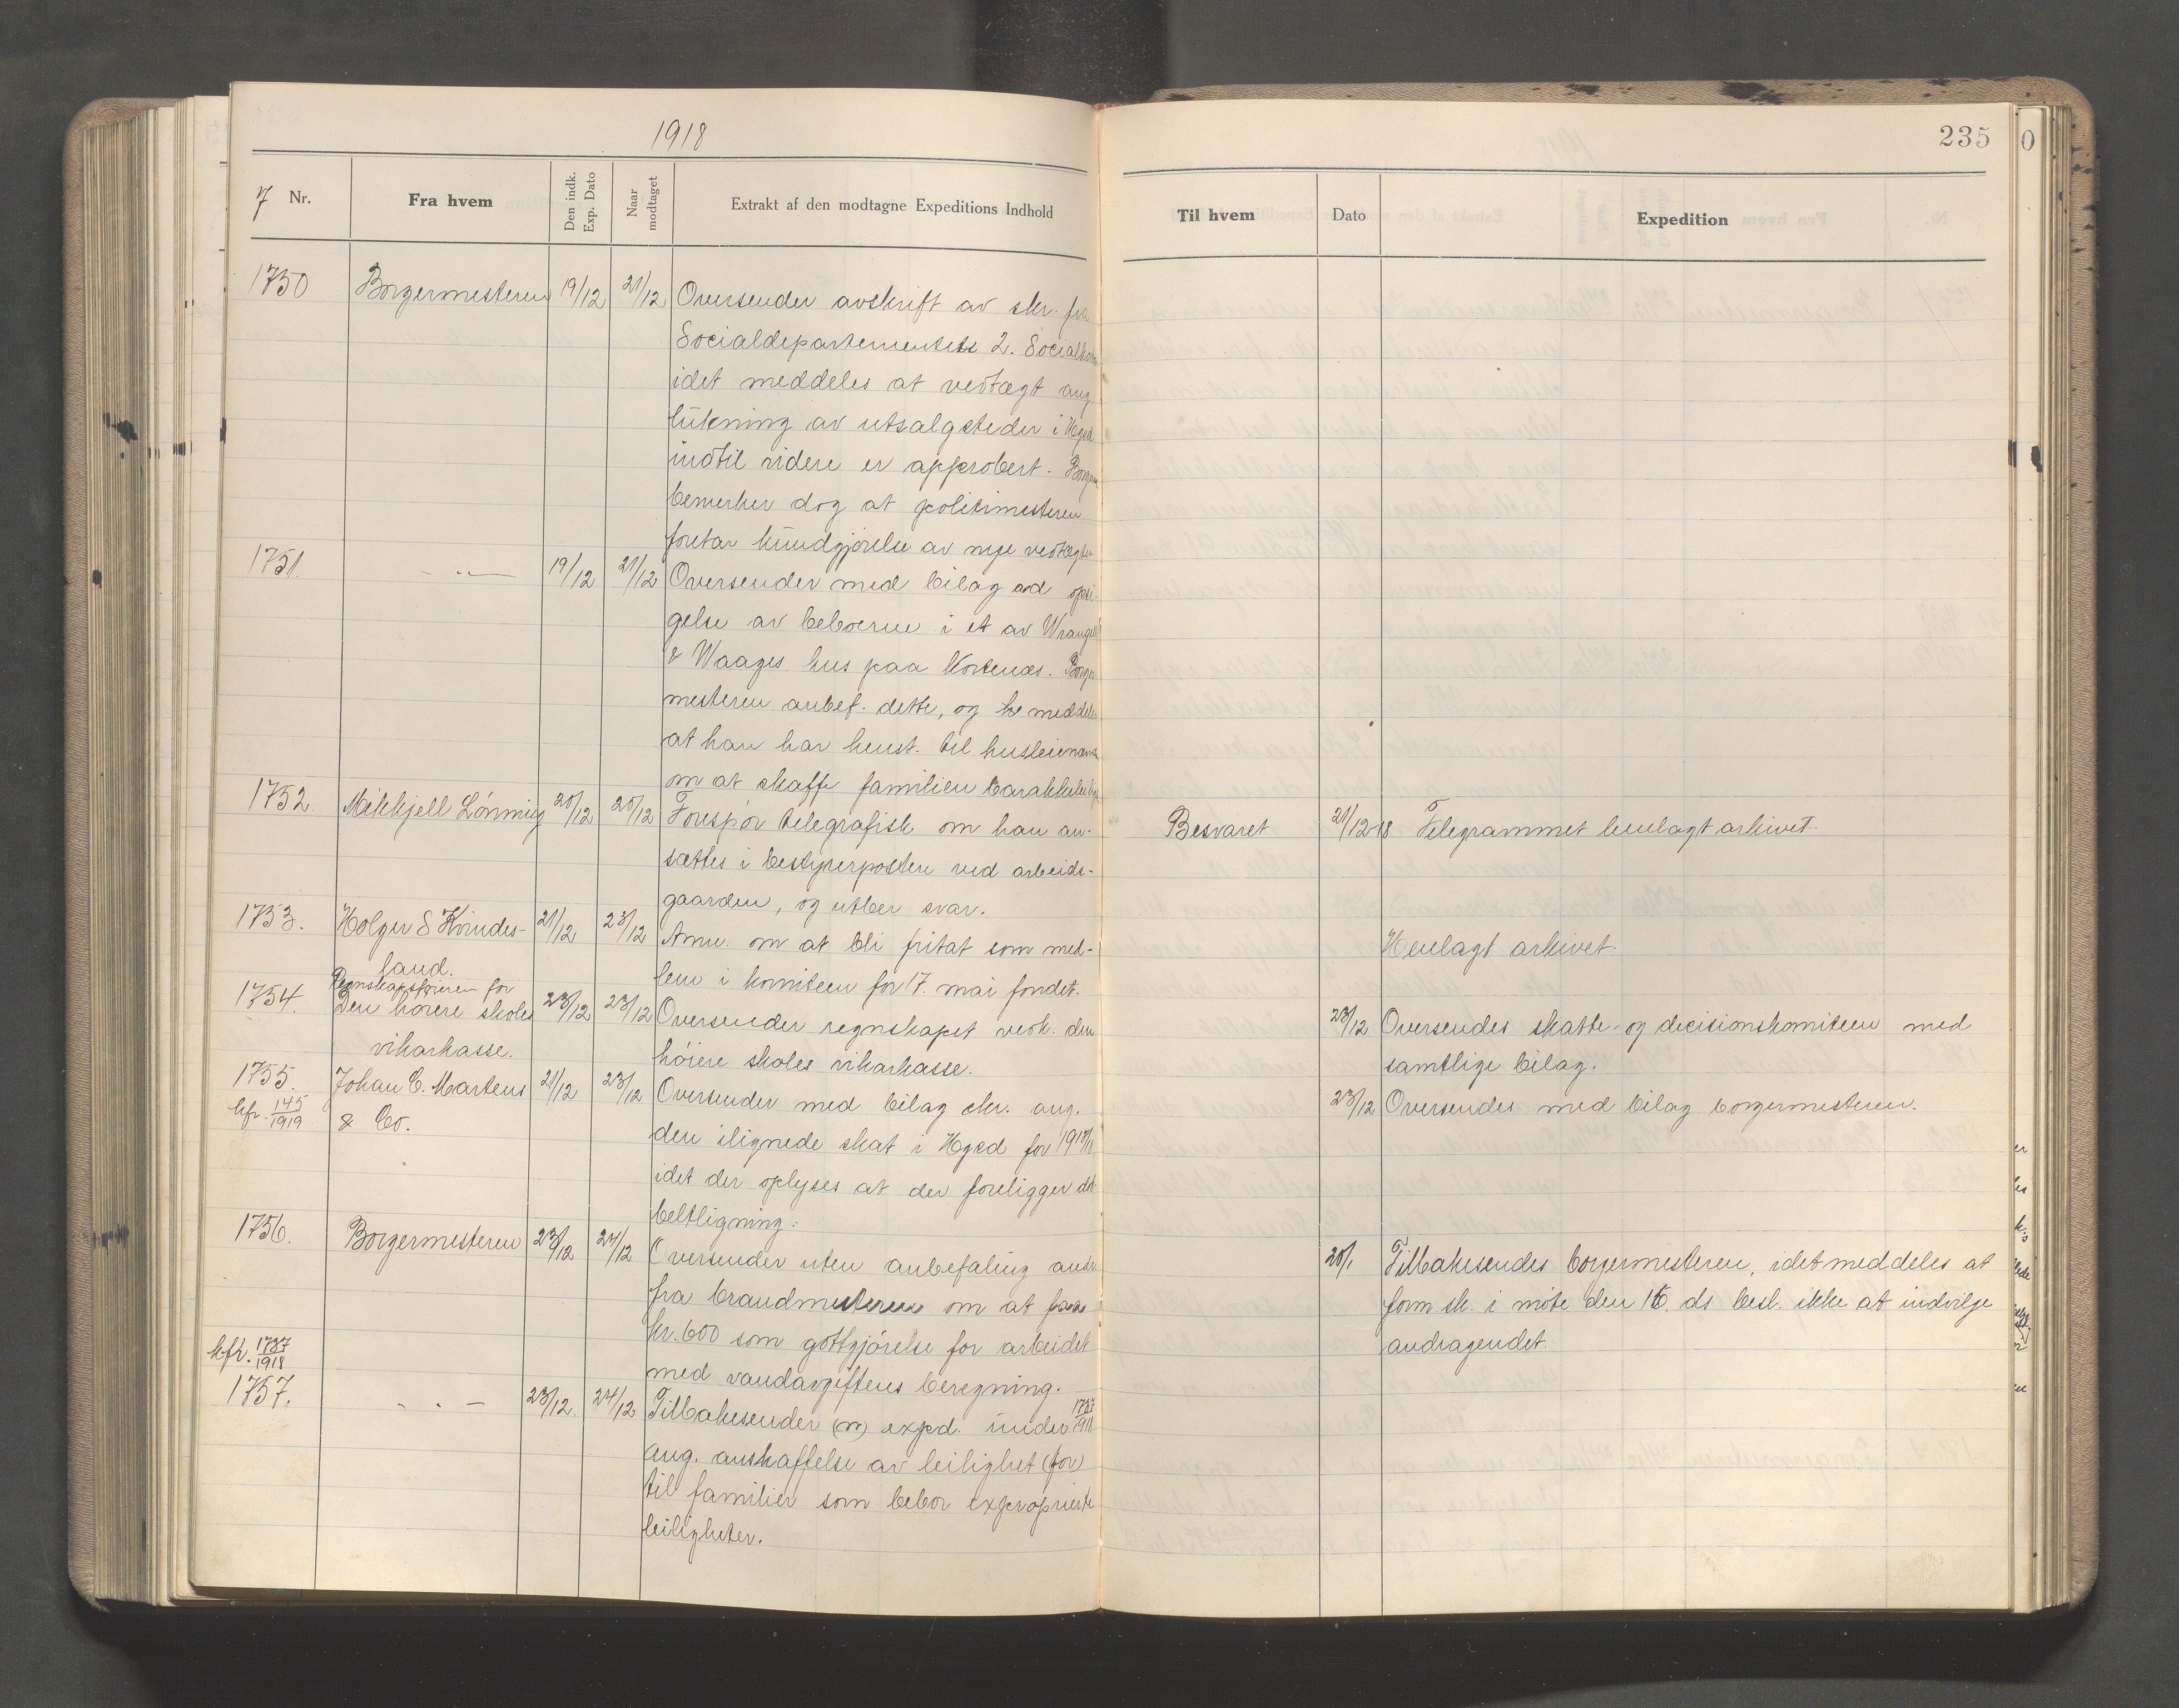 1918
Nr.
Fra hvem
Den indk. Exp. Dato
Naar modtaget
Extrakt af den modtagne Expeditions Indhold
1750
Borgermesteren
19/12
21/12
Oversender avskrift av skr. fra
Socialdepartementets 2. Socialkont
idet meddeles at vedtægt ang
lukning av utsalgsteder i Hgsd.
indtil videre er approbert. Borgerm
bemerker dog at politimesteren
foretar kundgjørelse av nye vedtægter
1751.
- " -
19/12
21/12
Oversender med bilag and opsi-
gelse av beboerne i et av Wrangell
& Waages hus paa Nortenes. Borger
mesteren anbef. dette, og meddeler
at han har henst. til husleienævnda
om at skaffe familien barakkeleilig
1752.
Mikkjell Lønning
20/12
20/12
Forespør telegrafisk om han an-
sættes i bestyrerposten ved arbeids-
gaarden, og utber svar.
1753.
Holger S Kvindes-
land.
21/12
23/12
Anm. om at bli fritat som med-
lem i komiteen for 17. mai fondet.
1754.
Regnskapsføreren for
Den høiere skoles
vikarkasse.
23/12
23/12
Oversender regnskapet vedk. den
høiere skoles vikarkasse.
1755.
kfr. 145/1919
Johan C. Martens
& Co.
21/12
23/12
Oversender med bilag skr. ang.
den ilignede skat i Hgsd for 1917/18
idet der oplyses at der foreligger dob
beltligning.
1756.
Borgermesteren
23/12
24/12
Oversender uten anbefaling andr
fra brandmesteren om at faa
kr. 600 som gottgjørelse for arbeidet
med vandavgiftens beregning.
kfr. 1737/1918
1757.
- " -
23/12.
24/12
Tilbakesender (m) exped. under 1737/1918
ang. anskaffelse av leilighet (for)
til familier som bebor exproprierte
leiligheter.
235
Til hvem
Dato
Expedition
Besvaret
21/12-18
Telegrammet henlagt arkivet.
Henlagt arkivet.
23/12
Oversendes skatte- og decisionskomiteen med
samtlige bilag.
23/12
Oversendes med bilag borgermesteren.
20/1
Tilbakesendes borgermesteren, idet meddeles at
form.sk. i møte den 16. ds besl. ikke at indvilge
andragendet.